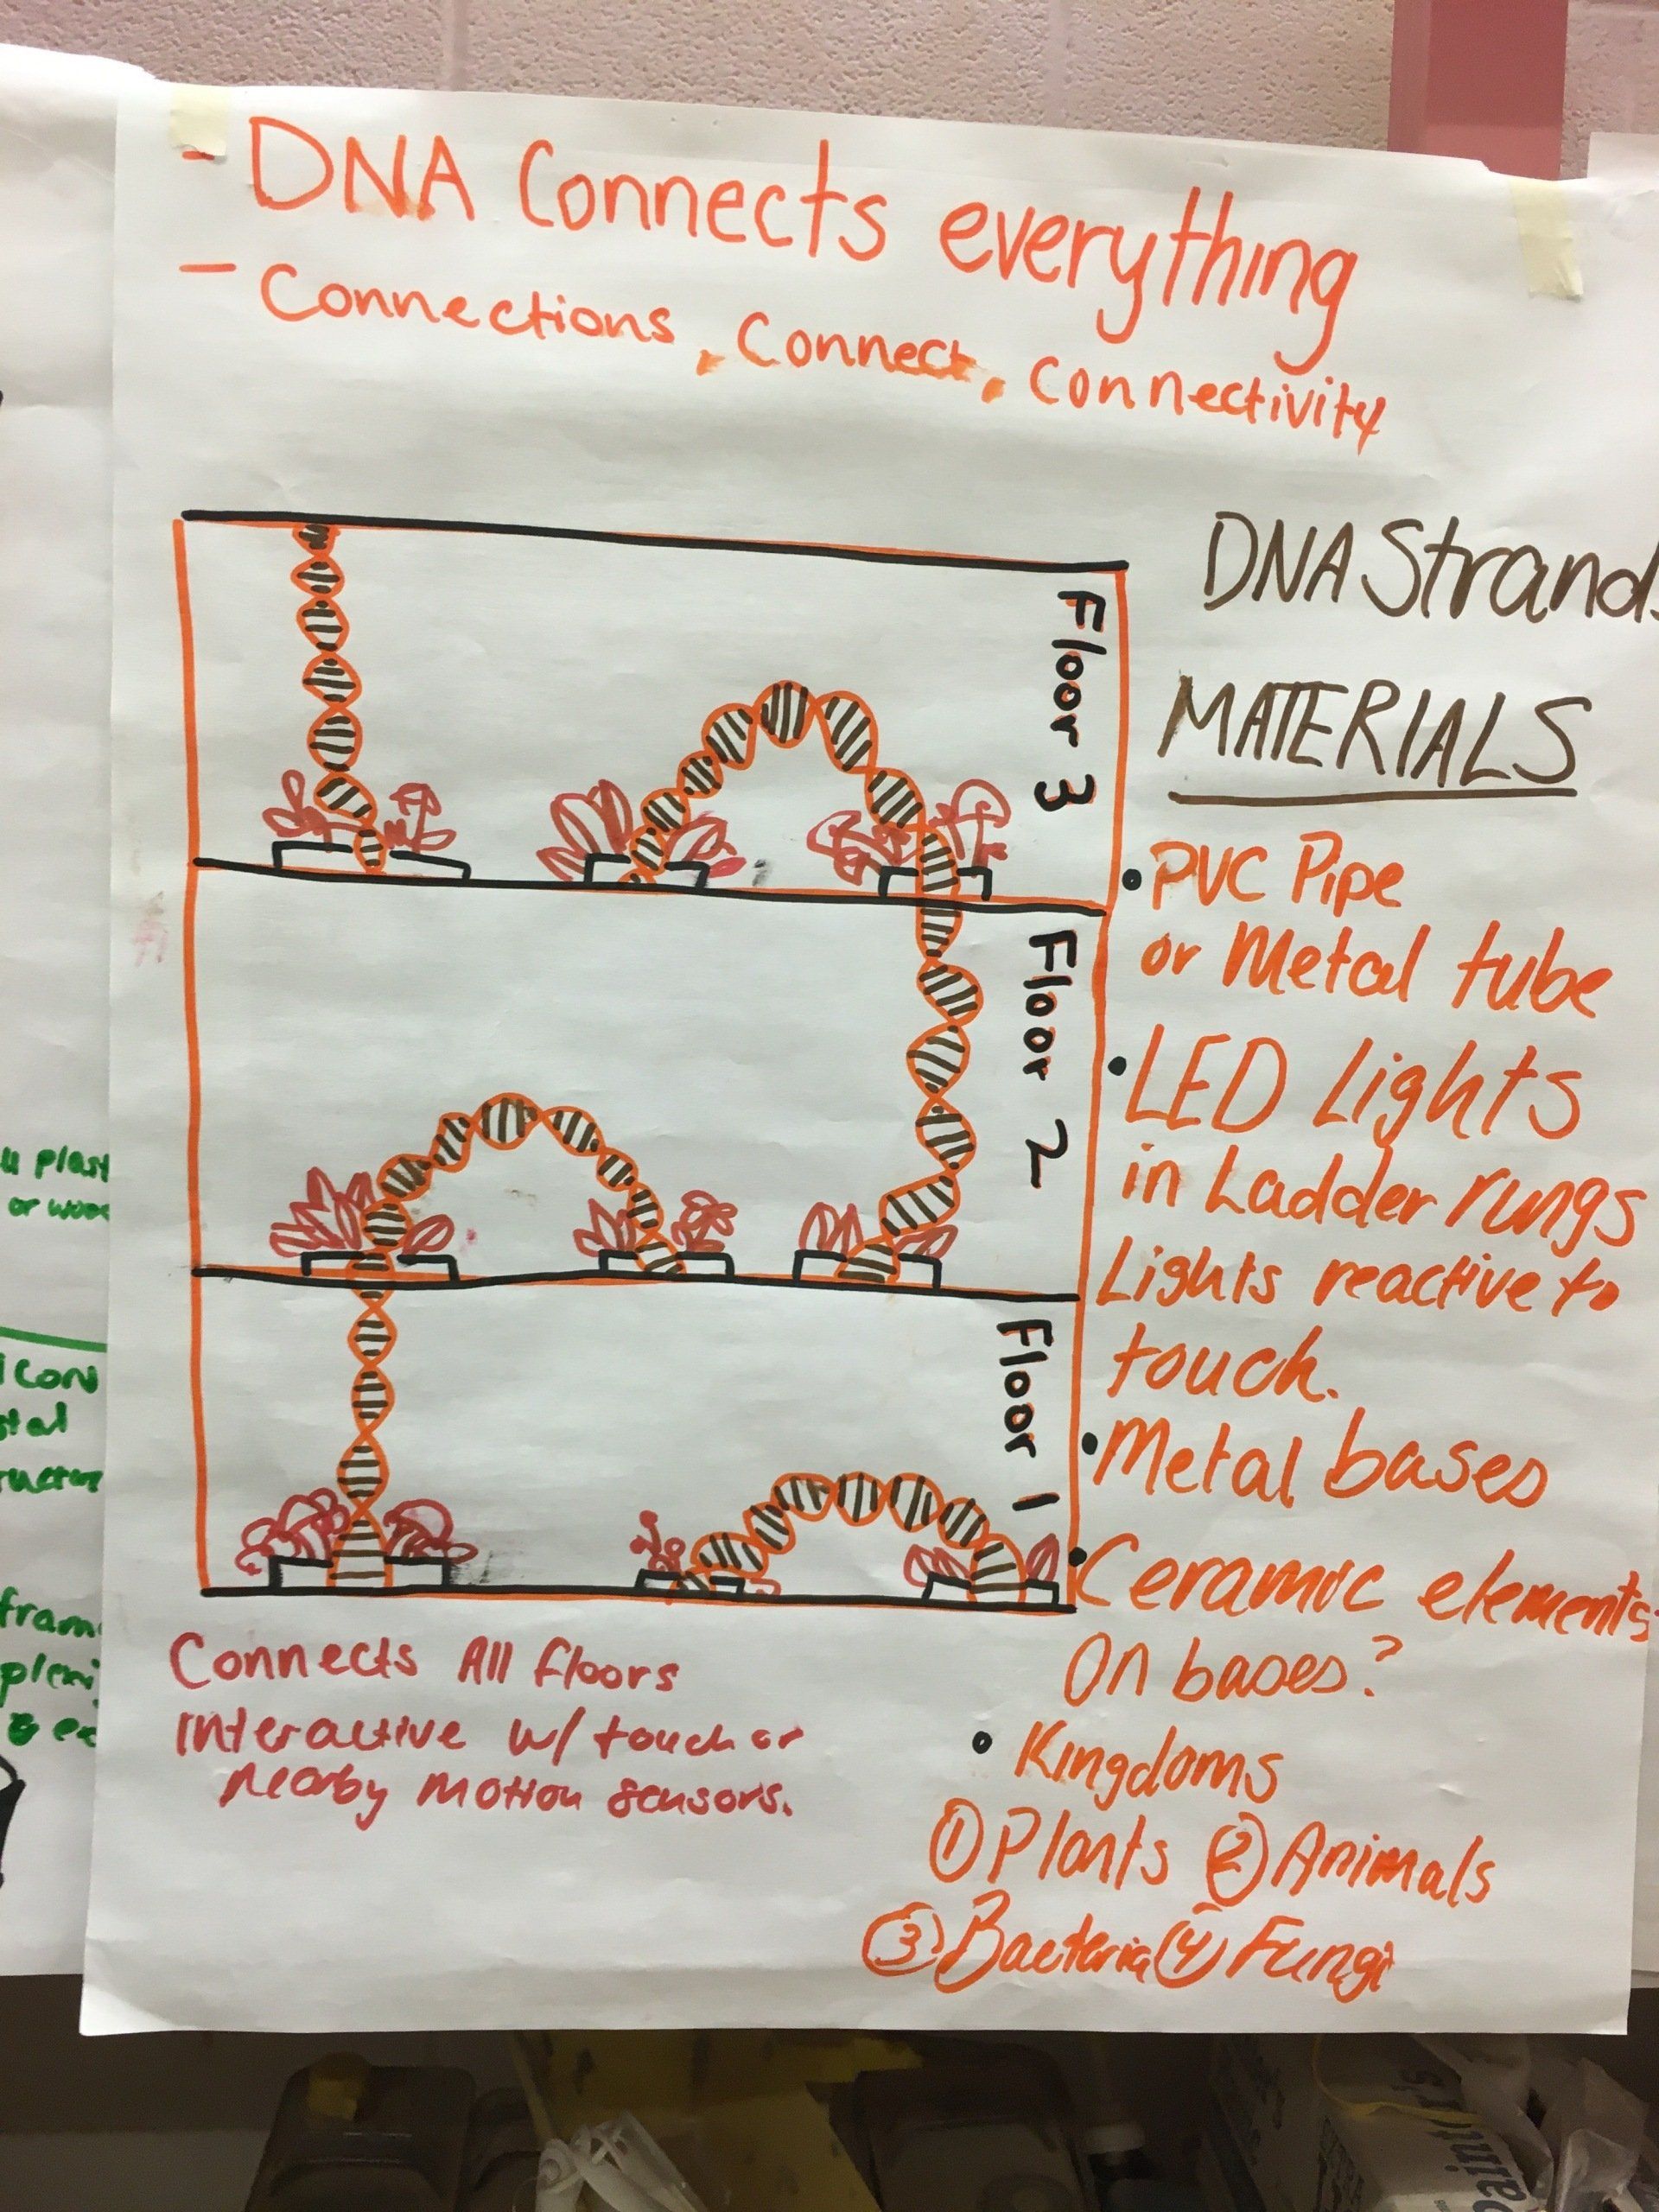 - DNA Connects everything
- Connections, Connect, Connectivity
DNA Strands
MATERIALS
Floor 3
Floor 2
Floor 1
• PVC Pipe
or Metal tube
• LED Lights
in Ladder rungs
Lights reactive to
touch.
• Metal bases
• Ceramic elements
On bases?
• Kingdoms
① Plants ② Animals
③ Bacteria ④ Fungi
Connects All floors
Interactive w/ touch or
nearby motion sensors.
or wood